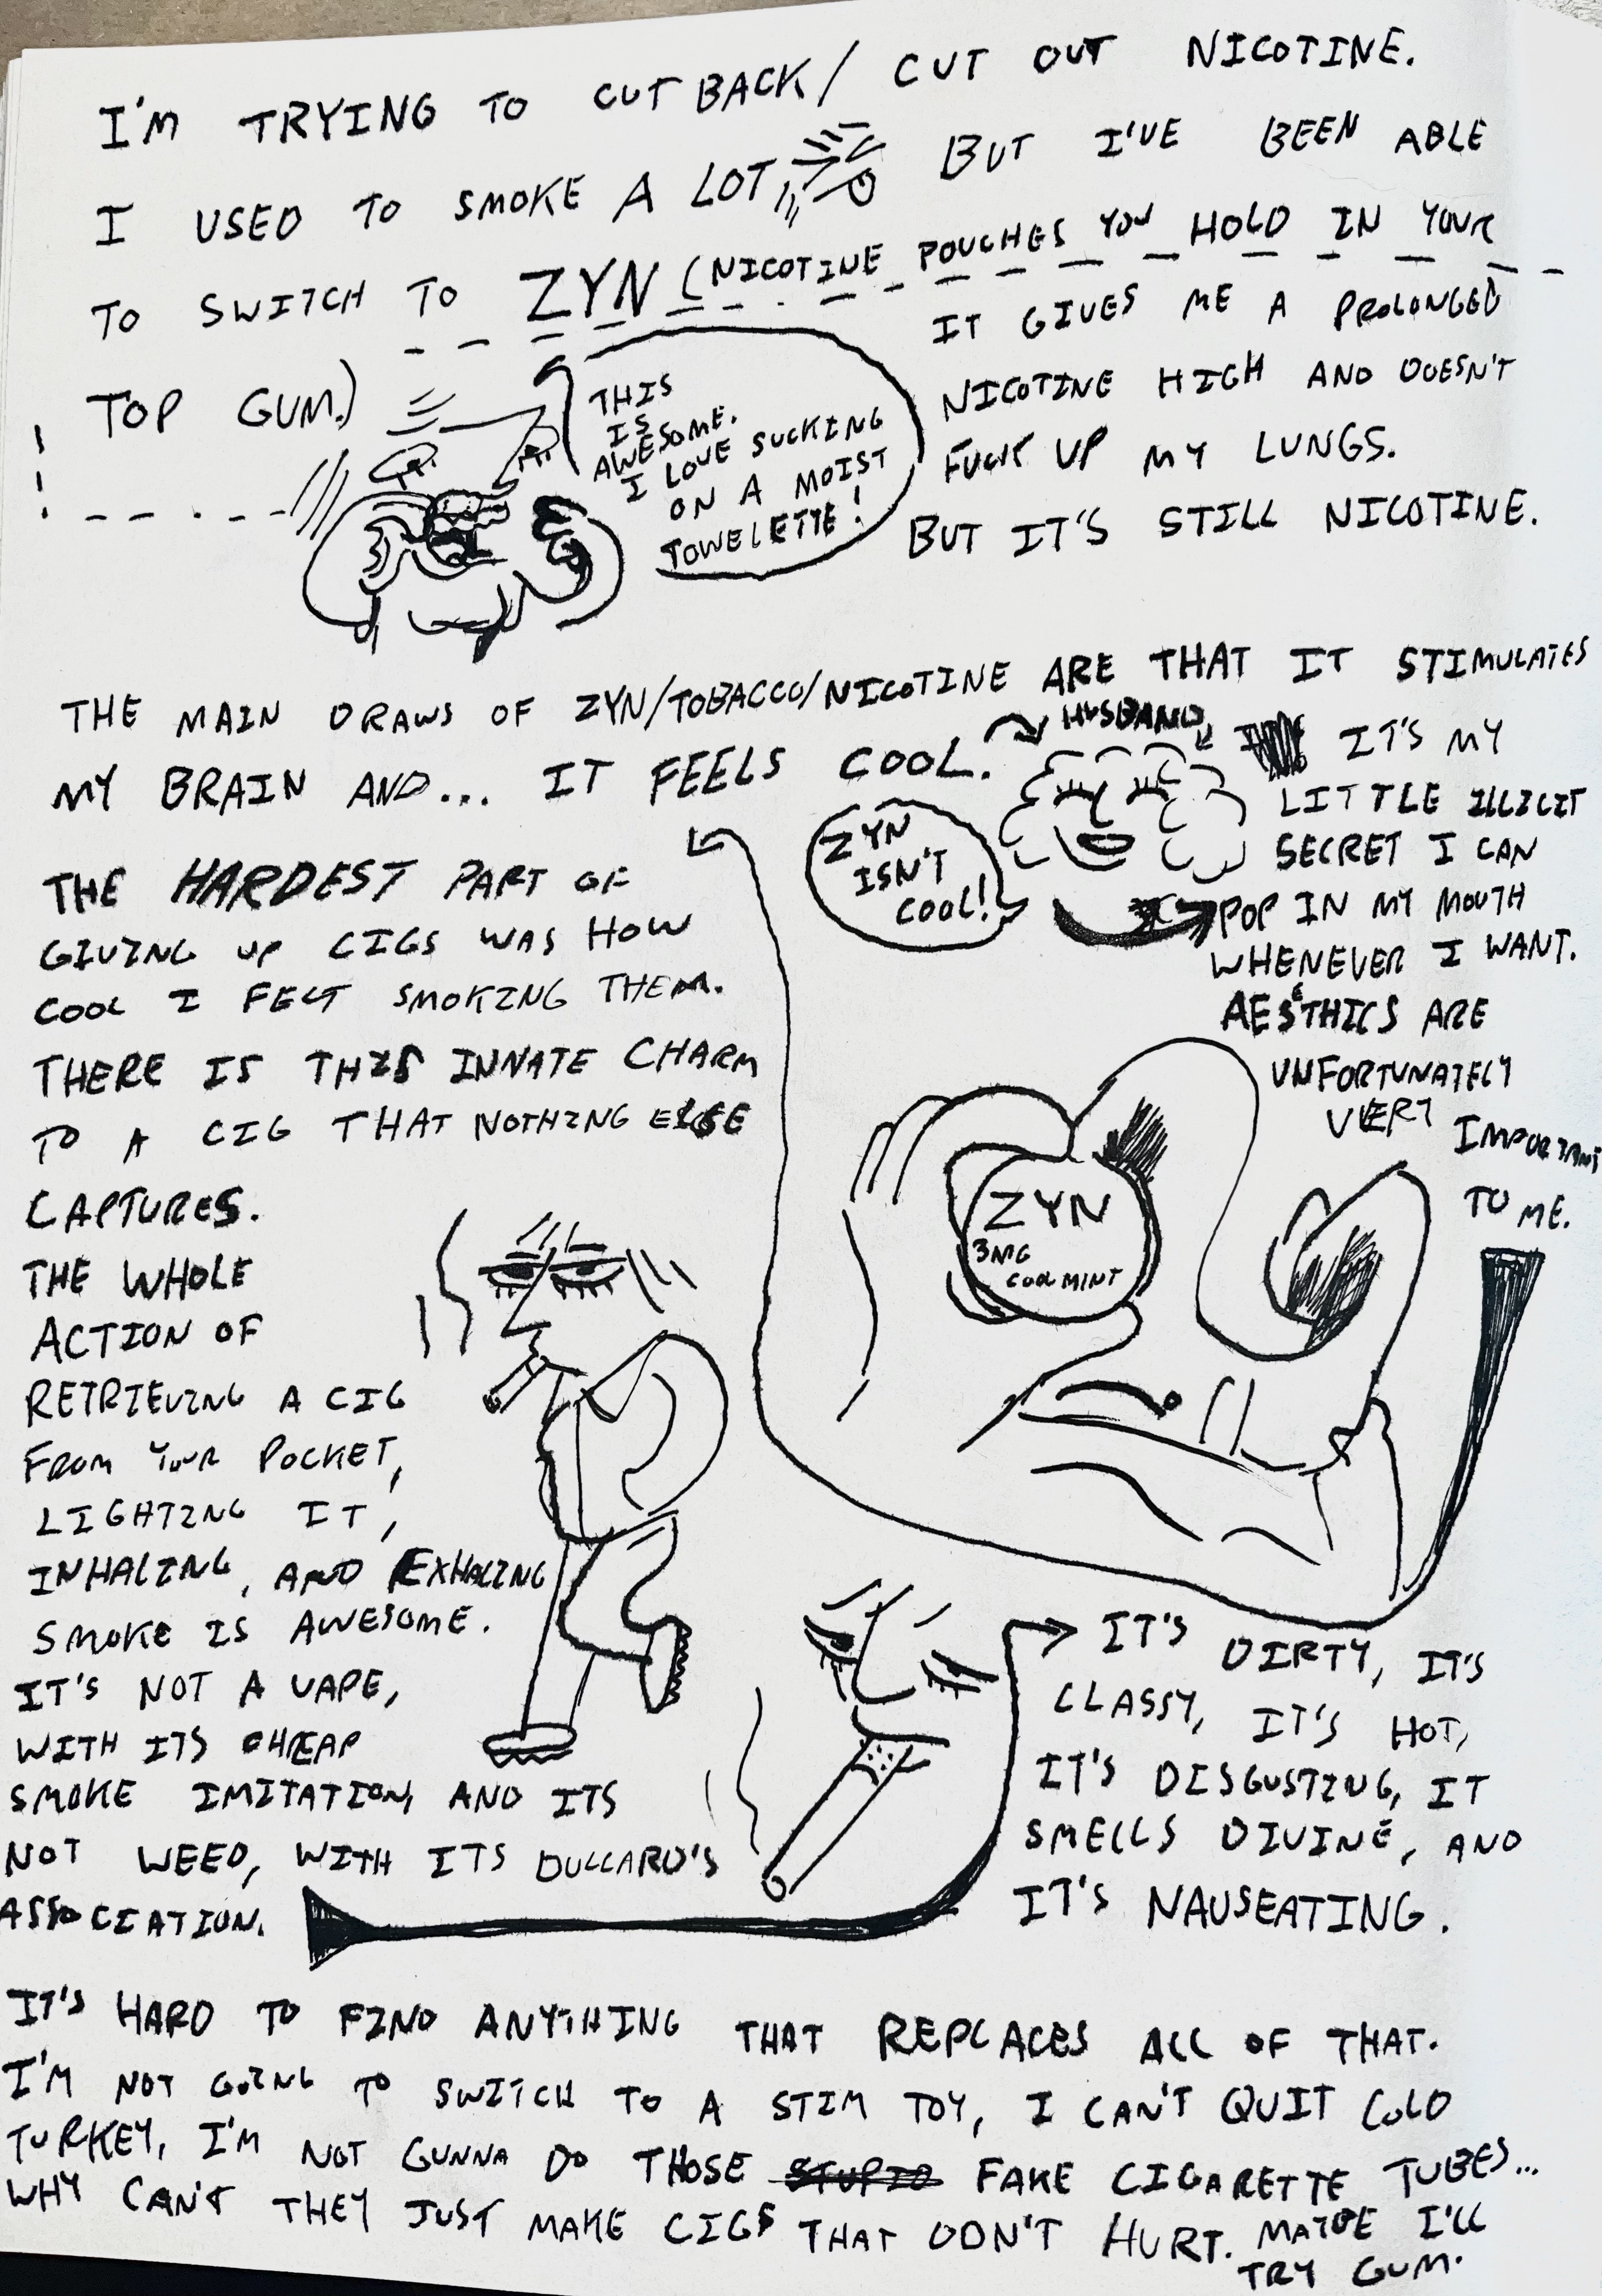 I'M TRYING TO CUT BACK/ CUT OUT NICOTINE.
I USED TO SMOKE A LOT, BUT I'VE BEEN ABLE
TO SWITCH TO ZYN (NICOTINE POUCHES YOU HOLD IN YOUR
TOP GUM.)
THIS
IS
AWESOME.
I LOVE SUCKING
ON A MOIST
TOWELETTE!
IT GIVES ME A PROLONGED
NICOTINE HIGH AND DOESN'T
FUCK UP MY LUNGS.
BUT IT'S STILL NICOTINE.
THE MAIN DRAWS OF ZYN/TOBACCO/NICOTINE ARE THAT IT STIMULATES
MY BRAIN AND... IT FEELS COOL.
HUSBAND
ZYN
ISN'T
COOL!
IT'S MY
LITTLE ILLICIT
SECRET I CAN
POP IN MY MOUTH
WHENEVER I WANT.
AESTHICS ARE
UNFORTUNATELY
VERY IMPORTANT
TO ME.
ZYN
3MG
COOL MINT
THE HARDEST PART OF
GIVING UP CIGS WAS HOW
COOL I FELT SMOKING THEM.
THERE IS THIS INNATE CHARM
TO A CIG THAT NOTHING ELSE
CAPTURES.
THE WHOLE
ACTION OF
RETRIEVING A CIG
FROM YOUR POCKET,
LIGHTING IT,
INHALING, AND EXHALING
SMOKE IS AWESOME.
IT'S NOT A VAPE,
WITH ITS CHEAP
SMOKE IMITATION, AND ITS
NOT WEED, WITH ITS DULLARD'S
ASSOCIATION.
IT'S DIRTY, IT'S
CLASSY, IT'S HOT,
IT'S DISGUSTING, IT
SMELLS DIVINE, AND
IT'S NAUSEATING.
IT'S HARD TO FIND ANYTHING THAT REPLACES ALL OF THAT.
I'M NOT GOING TO SWITCH TO A STIM TOY, I CAN'T QUIT COLD
TURKEY, I'M NOT GUNNA DO THOSE STUPID FAKE CIGARETTE TUBES...
WHY CAN'T THEY JUST MAKE CIGS THAT DON'T HURT. MAYBE I'LL
TRY GUM.